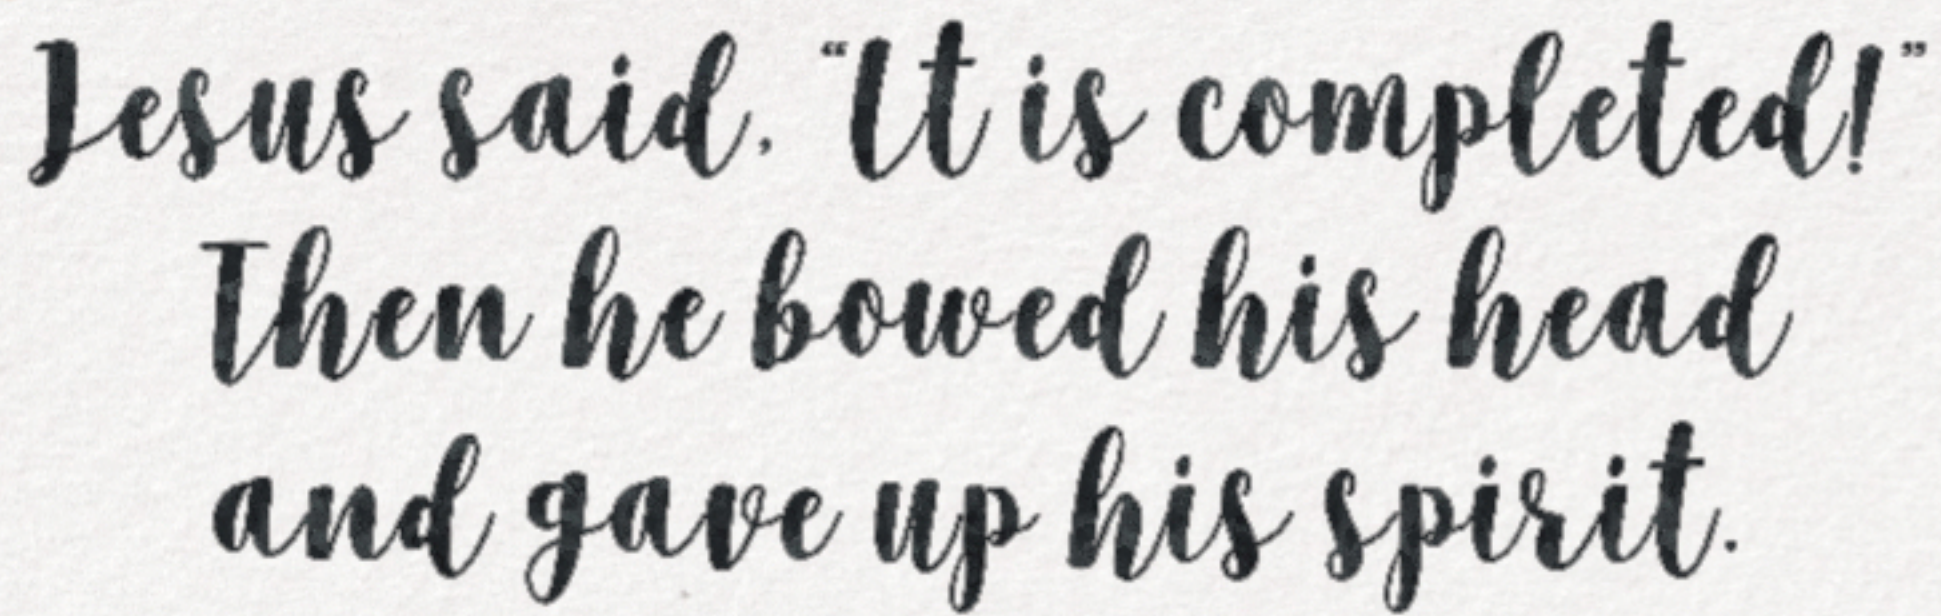 Jesus said, “It is completed!”
Then he bowed his head
and gave up his spirit.